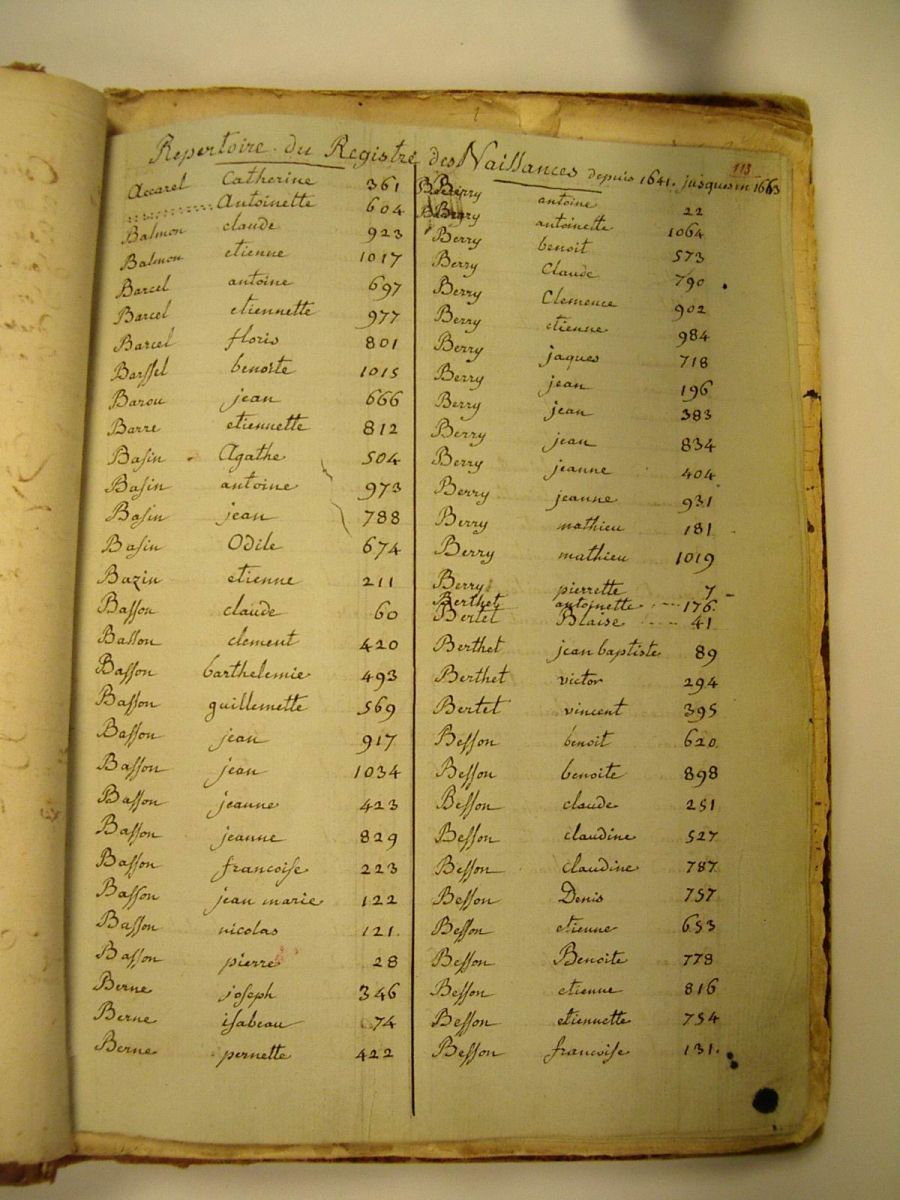 113
Repertoire du Registre des Naissances depuis 1641. jusques in 1663
Accarel Catherine 361
Antoinette 604
Balmon claude 923
Balmon etienne 1017
Barcel antoine 697
Barcel etiennette 977
Barcel floris 801
Barssel benoite 1015
Barou jean 666
Barre etiennette 812
Basin Agathe 504
Basin antoine 973
Basin jean 788
Basin Odile 674
Bazin etienne 211
Basson claude 60
Basson clement 420
Basson barthelemie 493
Basson guillemette 569
Basson jean 917
Basson jean 1034
Basson jeanne 423
Basson jeanne 829
Basson francoise 223
Basson jean marie 122
Basson nicolas 121.
Basson pierre 28
Berne joseph 346
Berne isabeau 74
Berne pernette 422
Berry antoine 22
Berry antoinette 1064
Berry benoit 573
Berry Claude 790
Berry Clemence 902
Berry etienne 984
Berry jaques 718
Berry jean 196
Berry jean 383
Berry jean 834
Berry jeanne 404
Berry jeanne 931
Berry mathieu 181
Berry mathieu 1019
Berry pierrette 7
Berthet antoinette 176.
Bertet Blaise 41
Berthet jean baptiste 89
Berthet victor 294
Bertet vincent 395
Besson benoit 620.
Besson benoite 898
Besson claude 251
Besson claudine 527
Besson claudine 787
Besson Denis 757
Besson etienne 653
Besson Benoite 778
Besson etienne 816
Besson etiennette 754
Besson francoise 131.